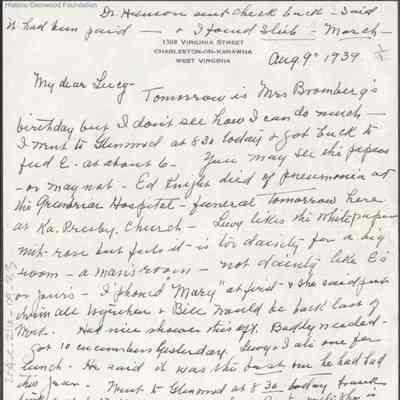 Historic Glenwood Foundation
Dr. Hanson sent check back - Said
it had been paid - & I found stub - March -
1308 VIRGINIA STREET
CHARLESTON-ON-KANAWHA
WEST VIRGINIA
Aug 9" 1939
My dear Lucy -
Tomorrow is Mrs Bromberg's
birthday but I don't see how I can do much -
I went to Glenwood at 8 30 today & got back to
find E. at about 6 - You may see the papers
- or may not - Ed Knight died of pneumonia at
the Greenbrier Hospital - funeral tomorrow here
at Ka. Presby. Church - Lewy likes the white paper
with rose but feels it is too dainty for a big
room - a man's room - not dainty like E's
or yours - I phoned "Mary" at first - & she said just
& Bill would be back last of
Had nice shower this aft. Badly needed -
Got 10 cucumbers yesterday. Lewy & I ate one for
lunch. He said it was the best one he had had
this year. Went to Glenwood at 8 30 today